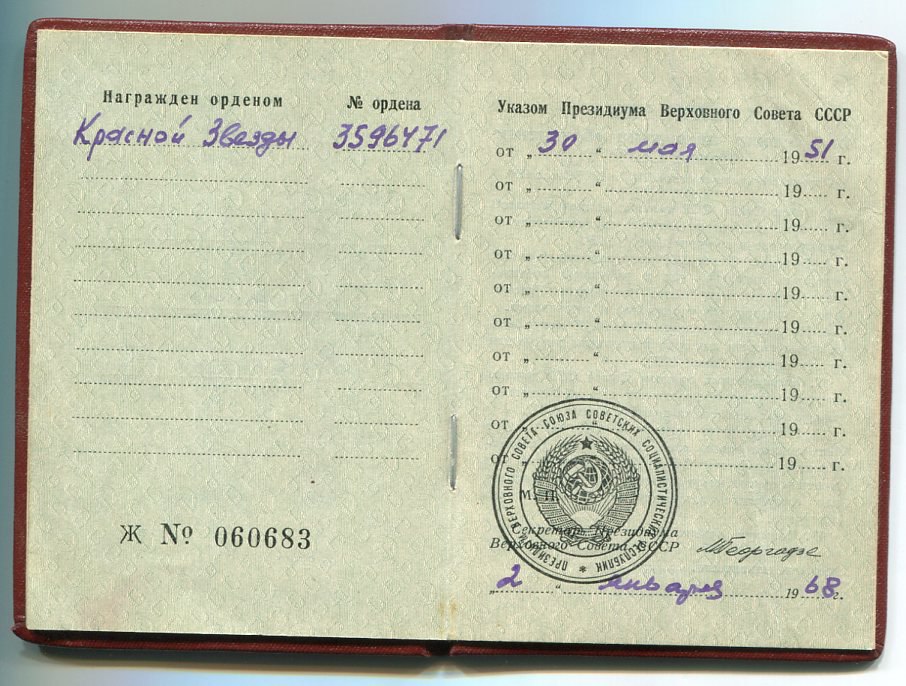 Награжден орденом
№ ордена
Красной Звезды
3596471
Ж № 060683
Указом Президиума Верховного Совета СССР
от „ 30 “ мая 1951 г.
от „ “ 19 г.
от „ “ 19 г.
от „ “ 19 г.
от „ “ 19 г.
от „ “ 19 г.
от „ “ 19 г.
от „ “ 19 г.
от „ “ 19 г.
от „ “ 19 г.
ПРЕЗИДИУМ ВЕРХОВНОГО СОВЕТА СОЮЗА СОВЕТСКИХ СОЦИАЛИСТИЧЕСКИХ РЕСПУБЛИК
М. П.
Секретарь Президиума
Верховного Совета СССР
МГеоргадзе
„ 2 “ января 1968 г.